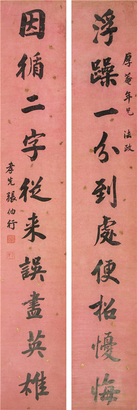 浮躁一分到處便招懮悔
厚菴年兄 法政
因循二字從来誤盡英雄
孝先張伯行